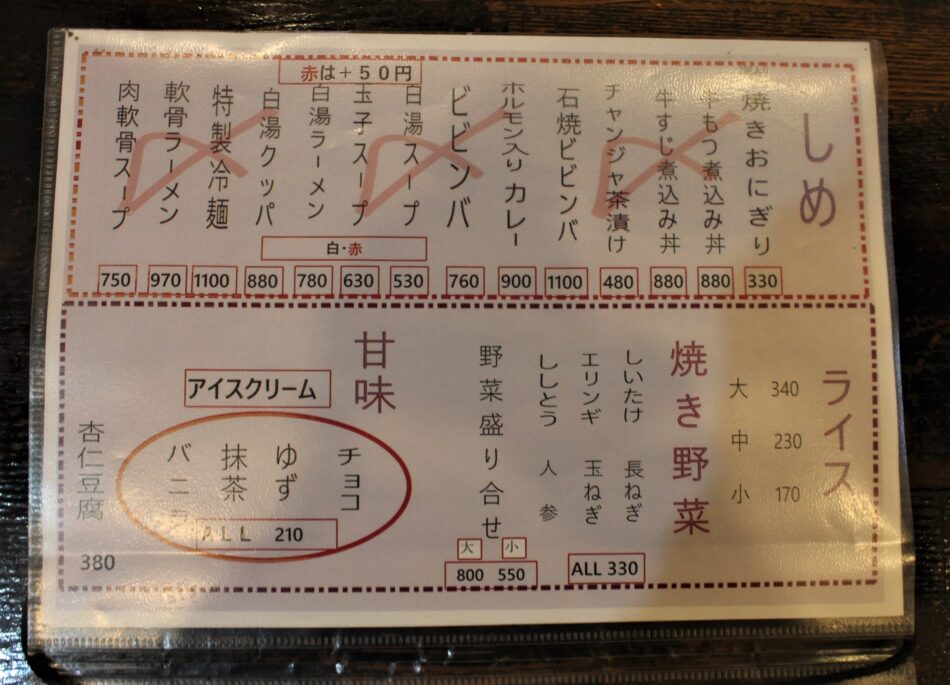 しめ
焼きおにぎり 330
牛もつ煮込み丼 880
牛すじ煮込み丼 880
チャンジャ茶漬け 480
石焼ビビンバ 1100
ホルモン入りカレー 900
ビビンバ 760
赤は+50円
白湯スープ 530
玉子スープ 630
白湯ラーメン 780
白湯クッパ 880
白・赤
特製冷麺 1100
軟骨ラーメン 970
肉軟骨スープ 750
〆
〆
〆
ライス
大 340
中 230
小 170
焼き野菜
しいたけ 長ねぎ
エリンギ 玉ねぎ
ししとう 人参
ALL 330
野菜盛り合せ
大 小
800 550
甘味
アイスクリーム
チョコ
ゆず
抹茶
バニラ
ALL 210
杏仁豆腐
380